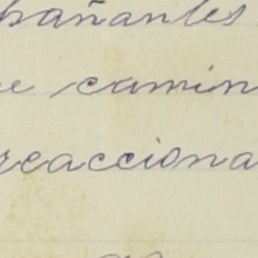 pañantes
e camin
reacciona